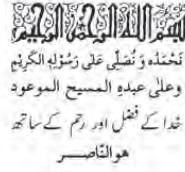 بسم الله الرحمن الرحيم
نَحْمَدُه وَ نُصَلِّی عَلٰی رَسُوْلِهِ الْکَرِیْمِ
وعلٰی عبدہِ المسیح الموعود
خدا کے فضل اور رحم کے ساتھ
ھوالنّاصــــر